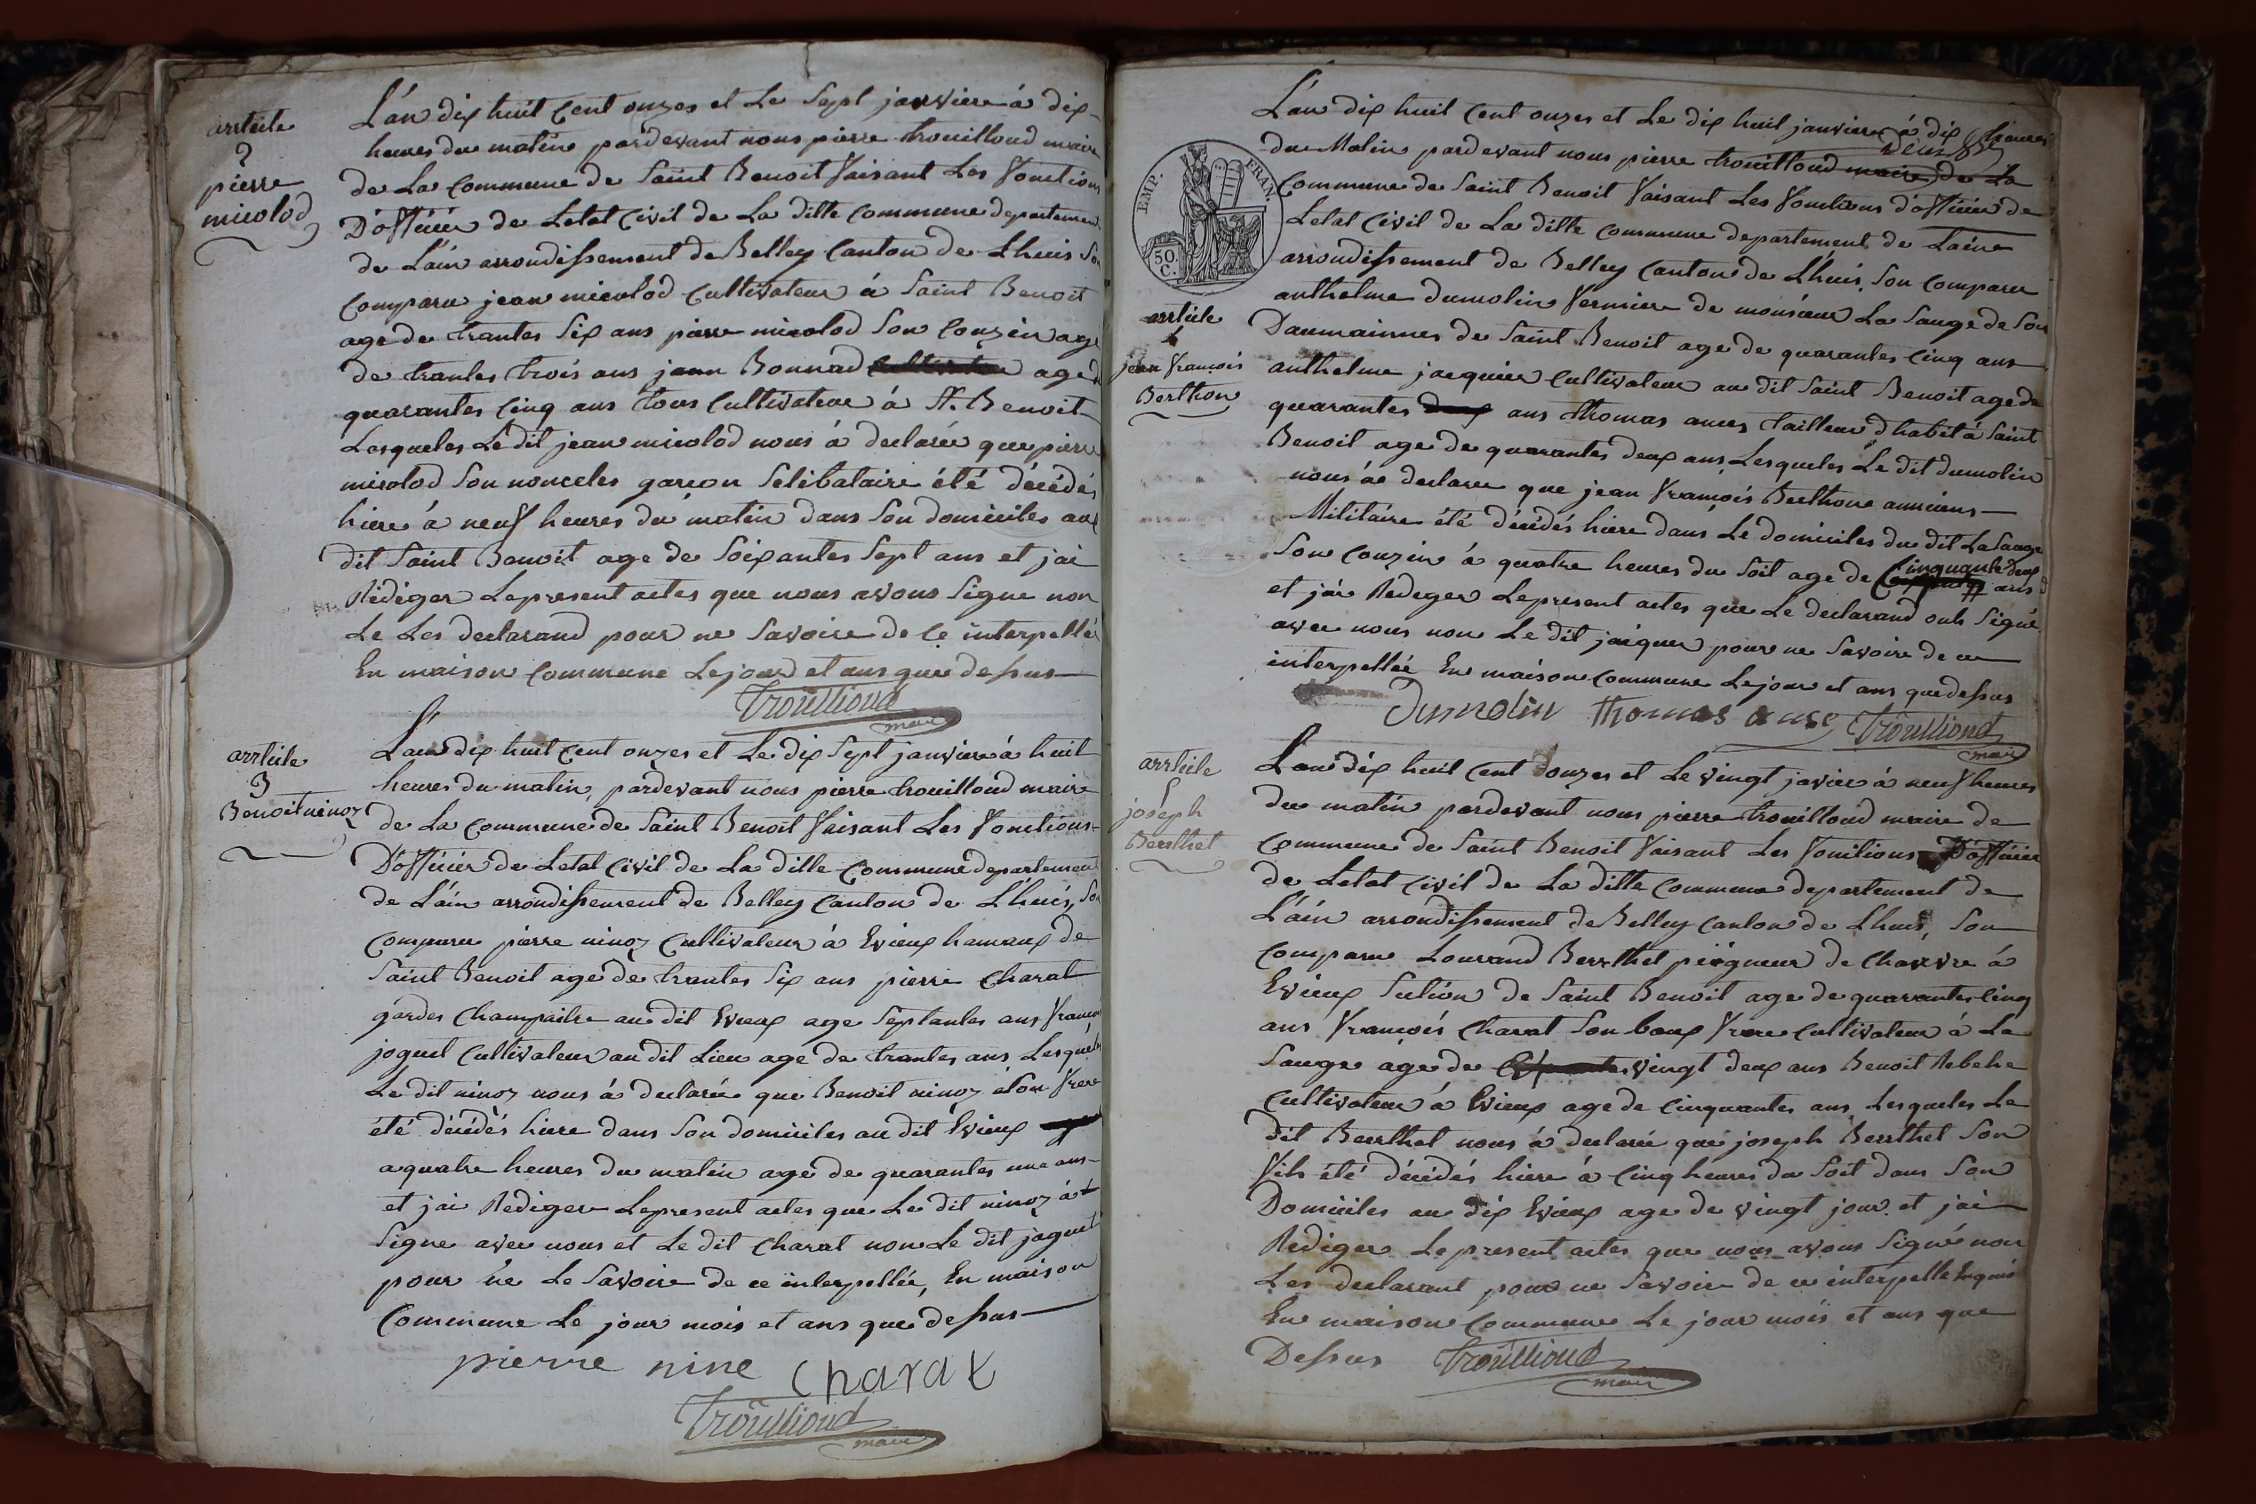 arrticle
2
pierre
micolod
L'an dix huit Cent onzes et Le Sept janviere á dix
heures du matin pardevant nous pierre trouilloud maire
de La Commune de Saint Benoit faisant Les fonctions
D'officier de Letat Civil de La ditte Commune departement
de L'ain arrondissement de Belley Canton de Lhuis Son
Comparu jean micolod Cultivateur á Saint Benoit
age de trantes Six ans pierre micolod Son Couzin age
de trantes trois ans jean Bonnad age de
quarantes Cinq ans tous Cultivateur á St. Benoit
Lesqueles Le dit jean micolod nous á declarée que pierre
micolod Son nonceles garcon Selibataire été décédés
hiere á neuf heures du matin dans Son domiciles au
dit Saint Benoit age de Soixantes Sept ans et jai
Rédiger Lepresent actes que nous avons Signe non
Le Les declarand pour ne Savoire de Ce interpellés
En maison Commune Lejour et ans que dessus
Trouilloud
maire
arrticle
3
Benoit ninoz
L'an dix huit Cent onzes et Le dix Sept janviere á huit
heures du matin, pardevant nous pierre trouilloud maire
de La Commune de Saint Benoit faisant Les fonctions
D'officier de Letat Civil de La ditte Commune departement
de L'ain arrondissement de Belley Canton de L'huis, Son
Comparu pierre ninoz Cultivateur á Evieux hamaux de
Saint Benoit age de trantes Six ans pierre Charat
gardes Champaitre au dit Evieux age Septantes ans francois
joguet Cultivateur au dit Lieu age de trantes ans Lesqueles
Le dit ninoz nous á declarée que Benoit ninoz Son frere
été décédés hiere dans Son domiciles au dit Evieux
a quatre heures du matin age de quarantes une ans
et jai Rediger Lepresent actes que Le dit ninoz á
Signe avec nous et Le dit Charat non Le dit joguet
pour ne Le Savoire de ce interpellée, En maison
Commune Le jour mois et ans que dessus
pierre nine Charat
Trouilloud
maire
L'an dix huit Cent onzes et Le dix huit janviere á dix heures
du Matin pardevant nous pierre trouilloud maire de La
Commune de Saint Benoit faisant Les fonctions d'officier de
Letat Civil de La ditte Commune departement de Laine
arrondissement de Belley Canton de L'huis, Son Comparu
EMP. FRAN.
50.
C.
arrticle
4
jean francois
Berthon
anthelme dumolin fermiere de monsieur La Sauge de Son
Daumainnes de Saint Benoit age de quarantes Cinq ans
anthelme jacquier Cultivateur au dit Saint Benoit age de
quarantes deux ans thomas ances tailleur d'habit á Saint
Benoit age de quarantes deux ans Lesqueles Le dit dumolin
nous áe declare que jean francois Berthone anniciens
Militaire été décédés hiere dans Le domiciles du dit LaSauge
Son Couzin á quatre heures du Soit age de Cinquante deux ans
et jai Rediger Lepresent actes que Le declarand onb Signé
avec nous non Le dit jaiquer pour ne Savoire de ce
interpellée En maison Commune Lejour et ans que dessus
Dumolin thomas anse Trouilloud
maire
arrticle
5
joseph
Berrthet
L'an dix huit Cent onzes et Le vingt javier á neuf heures
du matin pardevant nous pierre trouilloud maire de
Commune de Saint Benoit faisant Les fonitions D'officier
de Letat Civil de La ditte Commune departement de
L'ain arrondissement de Belley Canton de Lhuis, Son
Comparu Lourand Berrthet peigneur de Chanvre á
Evieux Section de Saint Benoit age de quarantes Cinq
ans francois Charat Son baux frere Cultivateur á La
Sauge age de vingt deux ans Benoit Rebehe
Cultivateur á Evieux age de Cinquantes ans Lesqueles Le
dit Berrthet nous á declarée que joseph Berrthet Son
fils été décédés hiere á Cinq heures du Soit dans Son
Domiciles au dix Evieux age de vingt jour et jai
Rediger Le present actes que nous avons Signé non
Les declarant pour ne Savoir de ce interpelle Enquis
En maison Commune Le jour mois et ans que
Dessus Trouilloud
maire